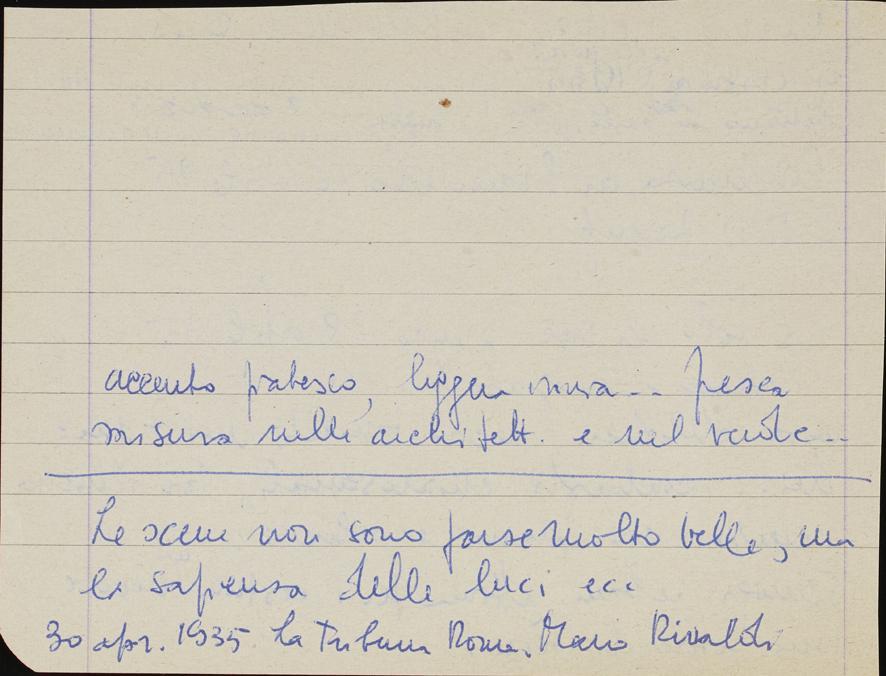 accento fiabesco, leggera ironia... fresca
misura nelle architett. e nel verde...
Le scene non sono forse molto belle, ma
la sapienza delle luci ecc
30 apr. 1935 La Tribuna Roma. Mario Rivaldi